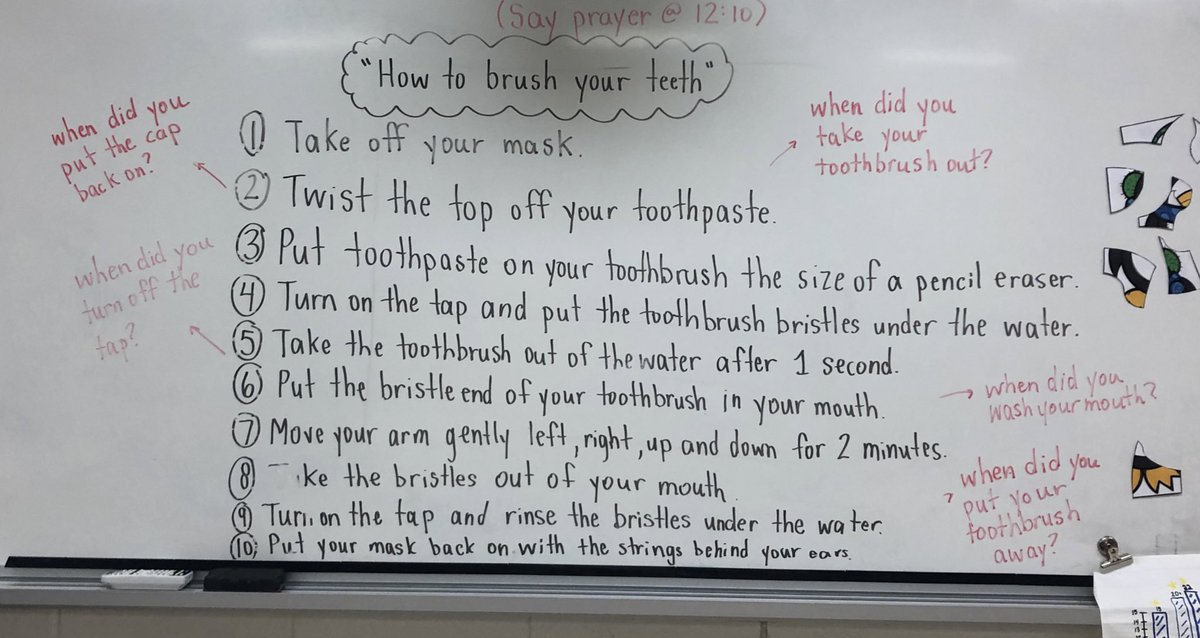 (Say prayer @ 12:10)
"How to brush your teeth"
① Take off your mask.
② Twist the top off your toothpaste.
③ Put toothpaste on your toothbrush the size of a pencil eraser.
④ Turn on the tap and put the toothbrush bristles under the water.
⑤ Take the toothbrush out of the water after 1 second.
⑥ Put the bristle end of your toothbrush in your mouth.
⑦ Move your arm gently left, right, up and down for 2 minutes.
⑧ ke the bristles out of your mouth.
⑨ Turn on the tap and rinse the bristles under the water.
⑩ Put your mask back on with the strings behind your ears.
when did you
put the cap
back on?
when did you
turn off the
tap?
when did you
take your
toothbrush out?
when did you
wash your mouth?
when did you
put your
toothbrush
away?